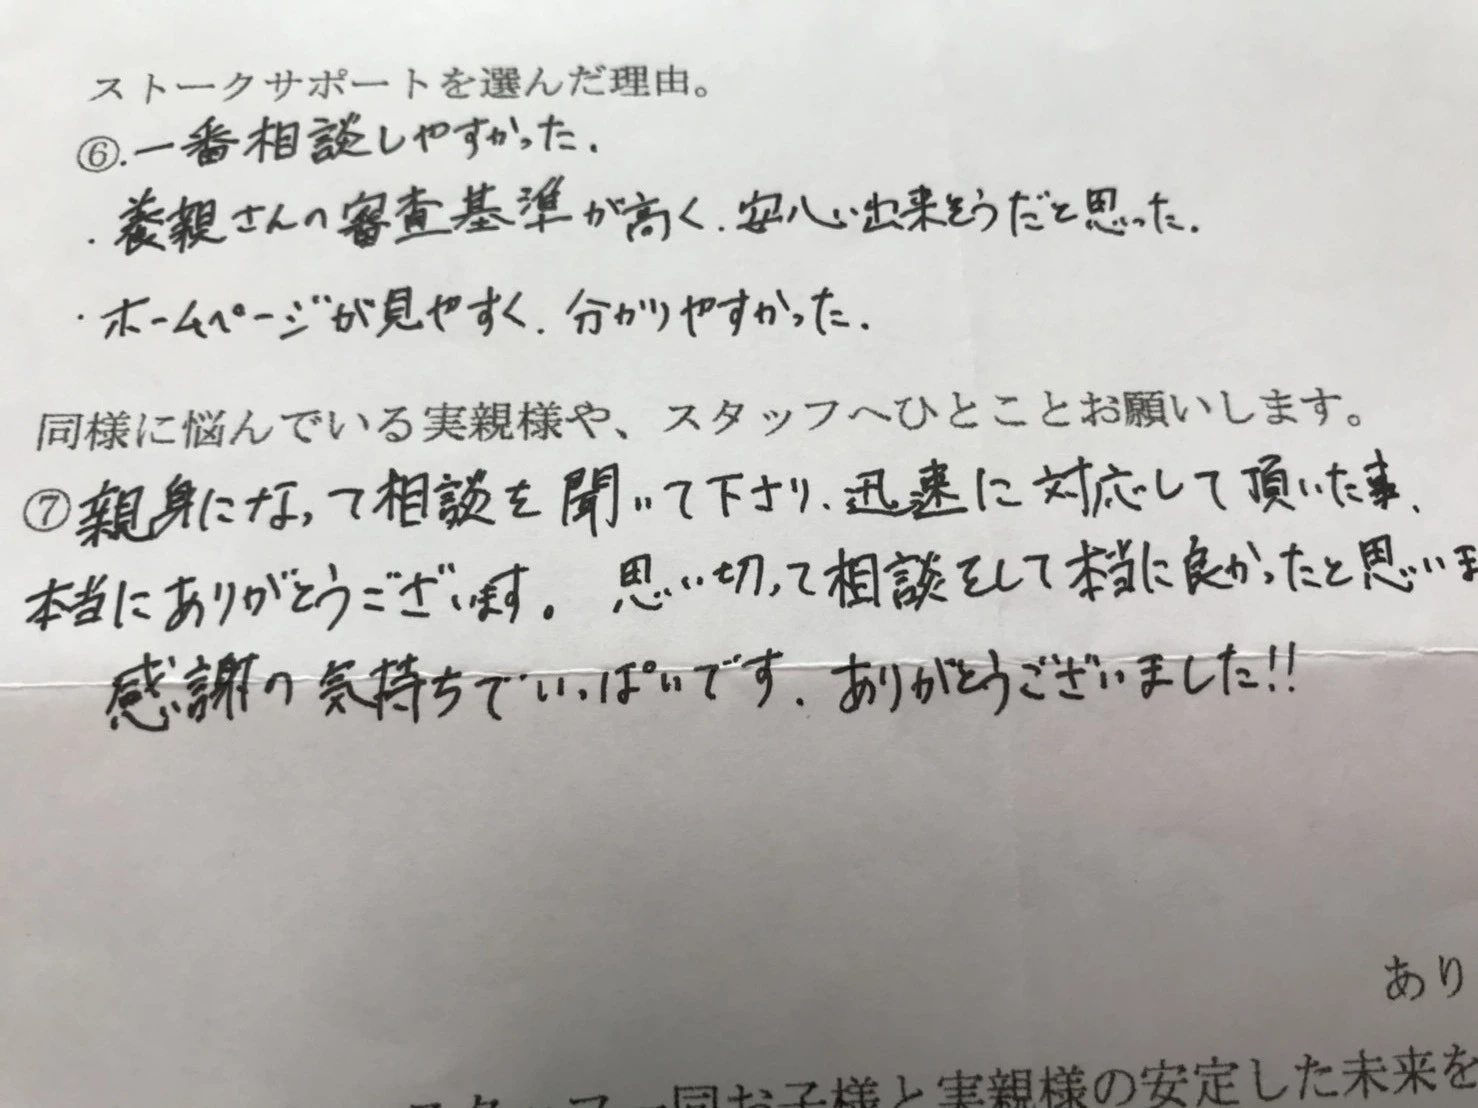 ストークサポートを選んだ理由。
⑥.一番相談しやすかった.
・養親さんの審査基準が高く、安心出来そうだと思った.
・ホームページが見やすく、分かりやすかった.
同様に悩んでいる実親様や、スタッフへひとことお願いします。
⑦親身になって相談を聞いて下さり、迅速に対応して頂いた事、
本当にありがとうございます。思い切って相談をして本当に良かったと思いま
感謝の気持ちでいっぱいです、ありがとうございました!!
あり
スタッフ一同お子様と実親様の安定した未来を